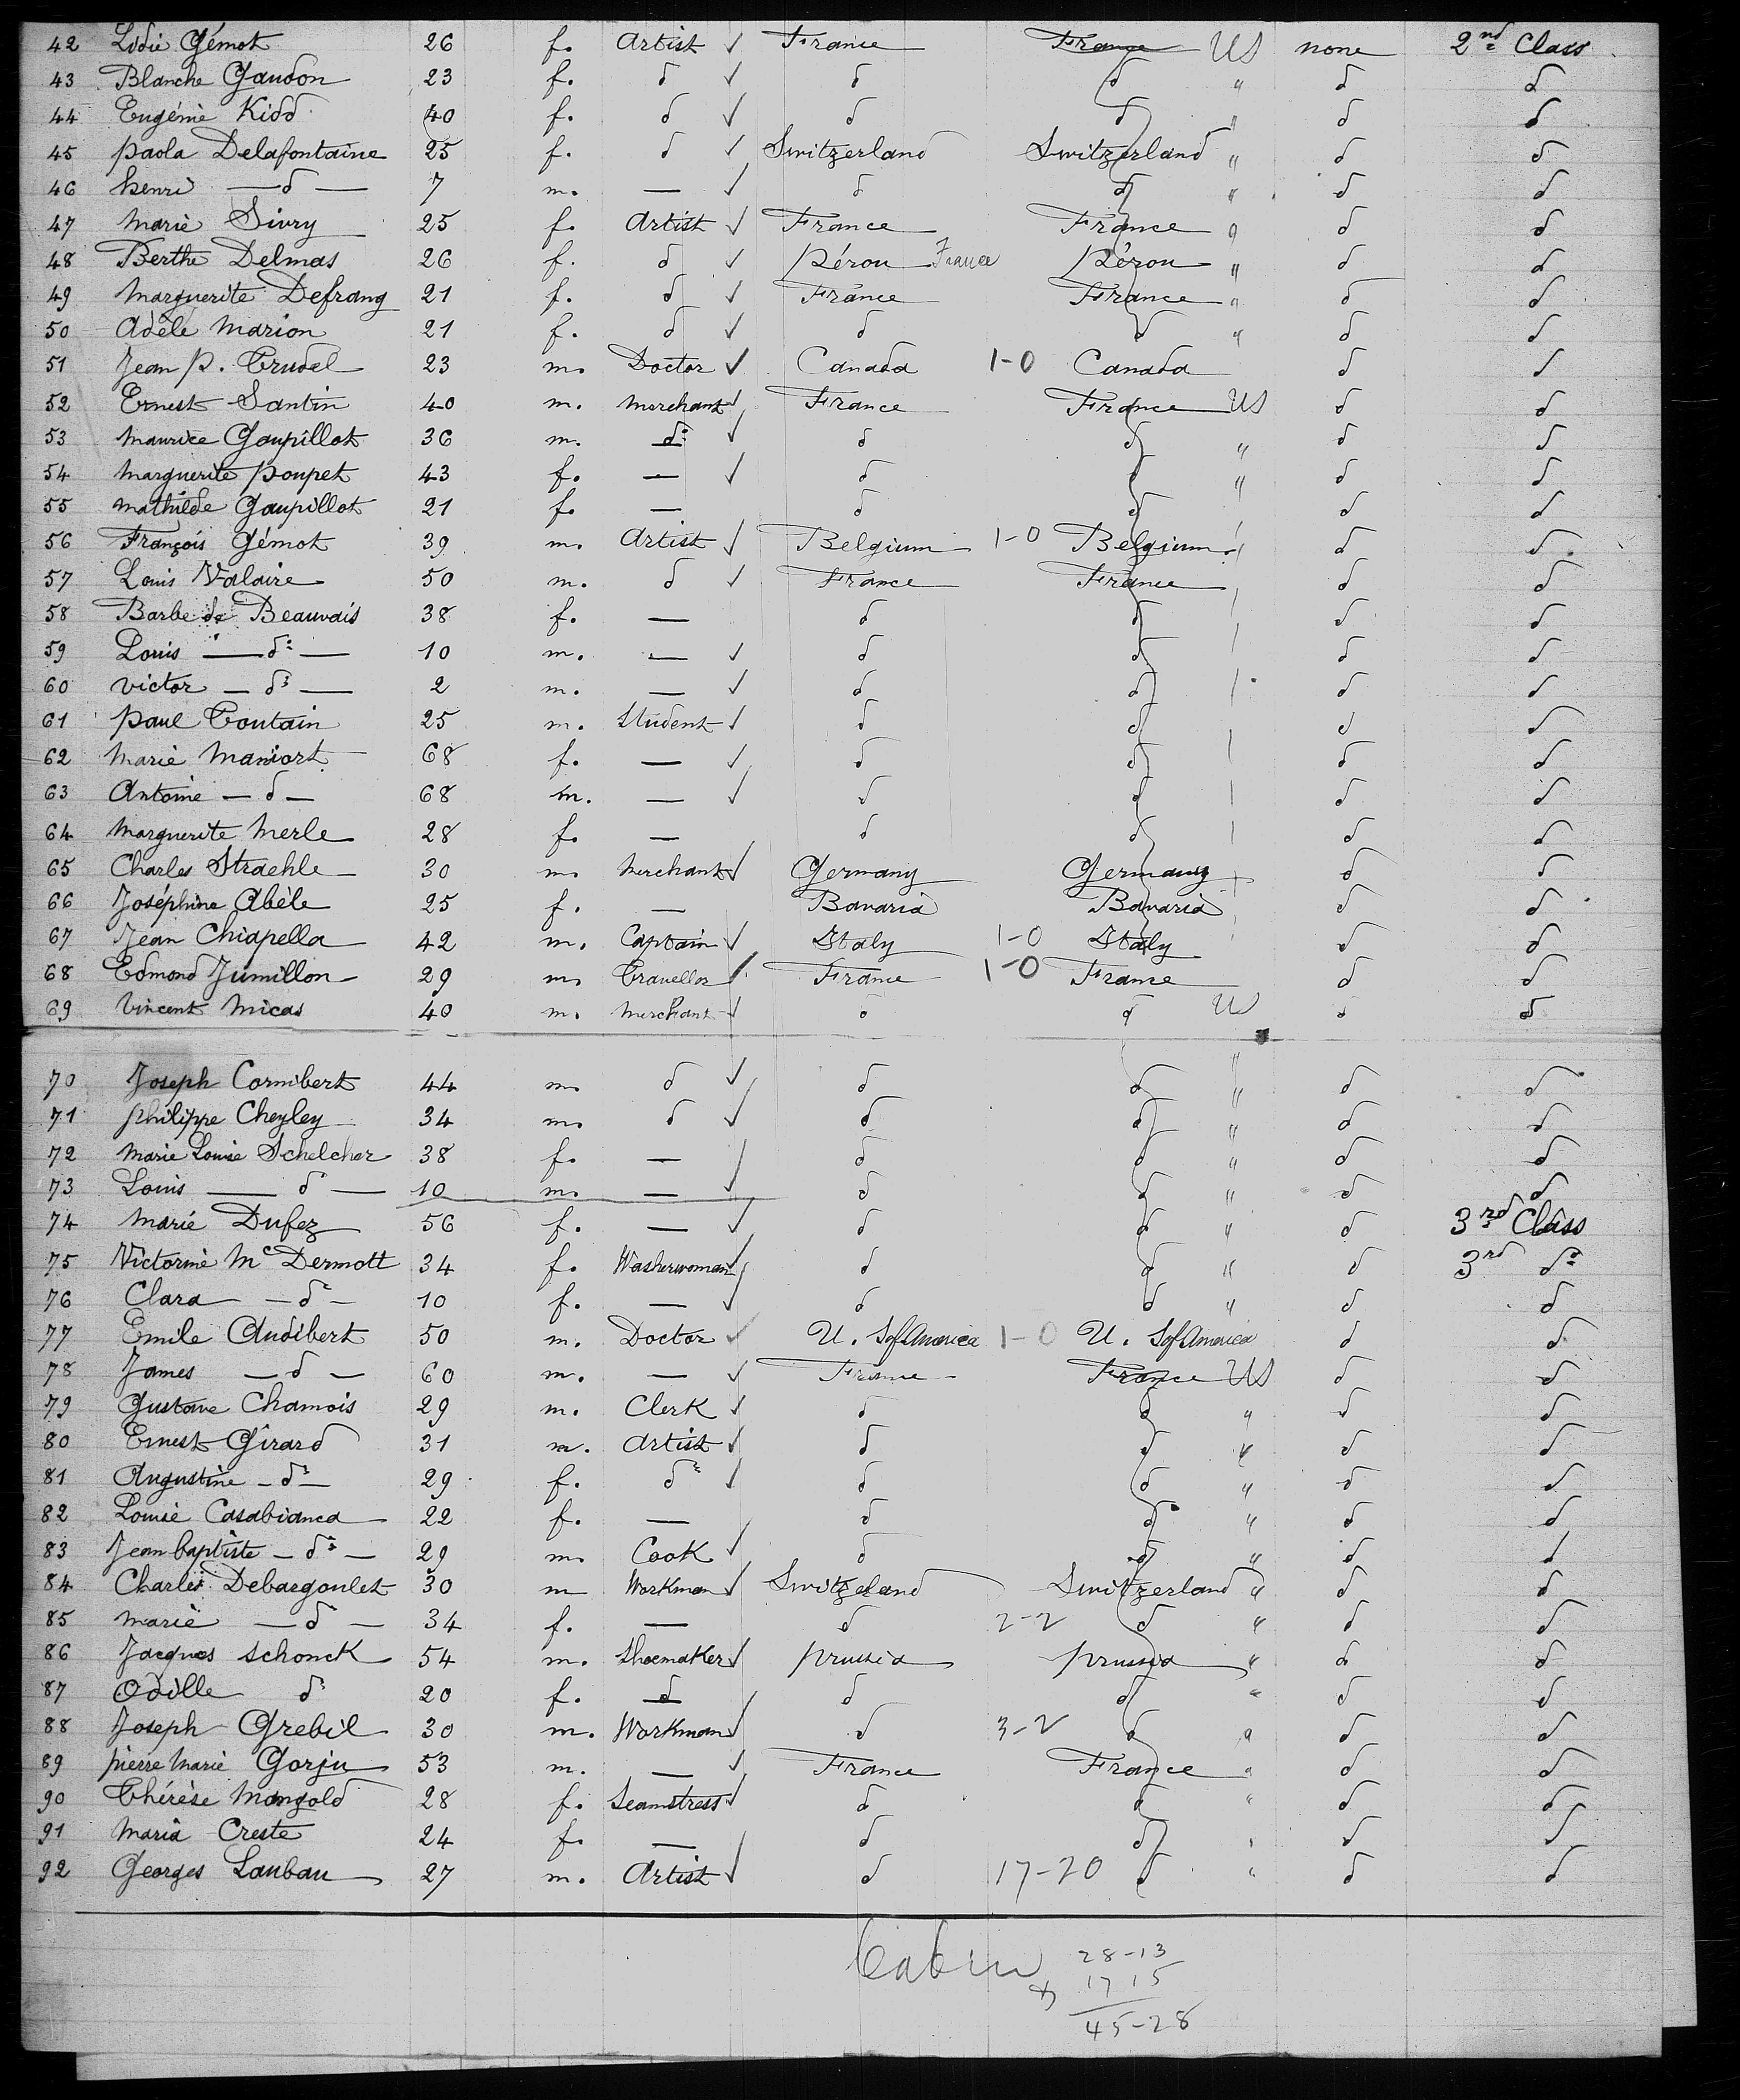 42 Lidie Gémot 26 f. Artist ✓ France France US none 2nd Class
43 Blanche Gaudon 23 f. d ✓ d d " d d
44 Eugénie Kidd 40 f. d ✓ d d " d d
45 Paola Delafontaine 25 f. d ✓ Switzerland Switzerland " d d
46 henri — d — 7 m. — ✓ d d " d d
47 Marie Sivry 25 f. Artist ✓ France France " d d
48 Berthe Delmas 26 f. d ✓ Pérou France Pérou " d d
49 Marguerite Defrang 21 f. d ✓ France France " d d
50 Adèle Marion 21 f. d ✓ d d " d d
51 Jean P. Trudel 23 m. Doctor ✓ Canada 1-0 Canada d d
52 Ernest Santin 40 m. Merchant ✓ France France US d d
53 Maurice Gaupillot 36 m. do ✓ d d " d d
54 Marguerite Poupet 43 f. — ✓ d d " d d
55 Mathilde Gaupillot 21 f. — d d " d d
56 François Gémot 39 m. Artist ✓ Belgium 1-0 Belgium " d d
57 Louis Valaire 50 m. d ✓ France France d d
58 Barbe de Beauvais 38 f. — d d d d
59 Louis — do — 10 m. — ✓ d d d d
60 Victor — do — 2 m. — ✓ d d d d
61 Paul Toutain 25 m. Student ✓ d d d d
62 Marie Maniort 68 f. — ✓ d d d d
63 Antoine — d — 68 m. — ✓ d d d d
64 Marguerite Merle 28 f. — d d d d
65 Charles Straehle 30 m. Merchant ✓ Germany Germany d d
66 Joséphine Abèle 25 f. — Bavaria Bavaria d d
67 Jean Chiapella 42 m. Captain ✓ Italy 1-0 Italy d d
68 Edmond Jumillon 29 m. Traveller ✓ France 1-0 France d d
69 Vincent Micas 40 m. Merchant ✓ d d US d d
70 Joseph Cornibert 44 m. d ✓ d d " d d
71 Philippe Cheyley 34 m. d ✓ d d " d d
72 Marie Louise Schelcher 38 f. — ✓ d d " d d
73 Louis — d — 10 m. — ✓ d d " d d
74 Marie Dufez 56 f. — ✓ d d " d 3rd Class
75 Victorine McDermott 34 f. Washerwoman ✓ d d " d 3rd do
76 Clara — d — 10 f. — ✓ d d " d d
77 Emile Audibert 50 m. Doctor ✓ U. S of America 1-0 U. S of America d d
78 James — d — 60 m. — ✓ France France US d d
79 Gustave Chamois 29 m. Clerk ✓ d d " d d
80 Ernest Girard 31 m. Artist ✓ d d " d d
81 Augustine — do — 29 f. do ✓ d d " d d
82 Louise Casabianca 22 f. — d d " d d
83 Jean baptiste — do — 29 m. Cook ✓ d d " d d
84 Charles Debargoulet 30 m Workman ✓ Switzeland Switzerland " d d
85 Marie — d — 34 f. — d 2-2 d " d d
86 Jacques Schonck 54 m. Shoemaker ✓ Prussia Prussia " d d
87 Odille d 20 f. d d d " d d
88 Joseph Grebil 30 m. Workman ✓ d 3-2 d " d d
89 Pierre Marie Gorju 53 m. — ✓ France France " d d
90 Thérèse Mangold 28 f. Seamstress ✓ d d " d d
91 Maria Creste 24 f. — d d " d d
92 Georges Lauban 27 m. Artist ✓ d 17-20 d " d d
Cabin 28-13
17 15
45-28